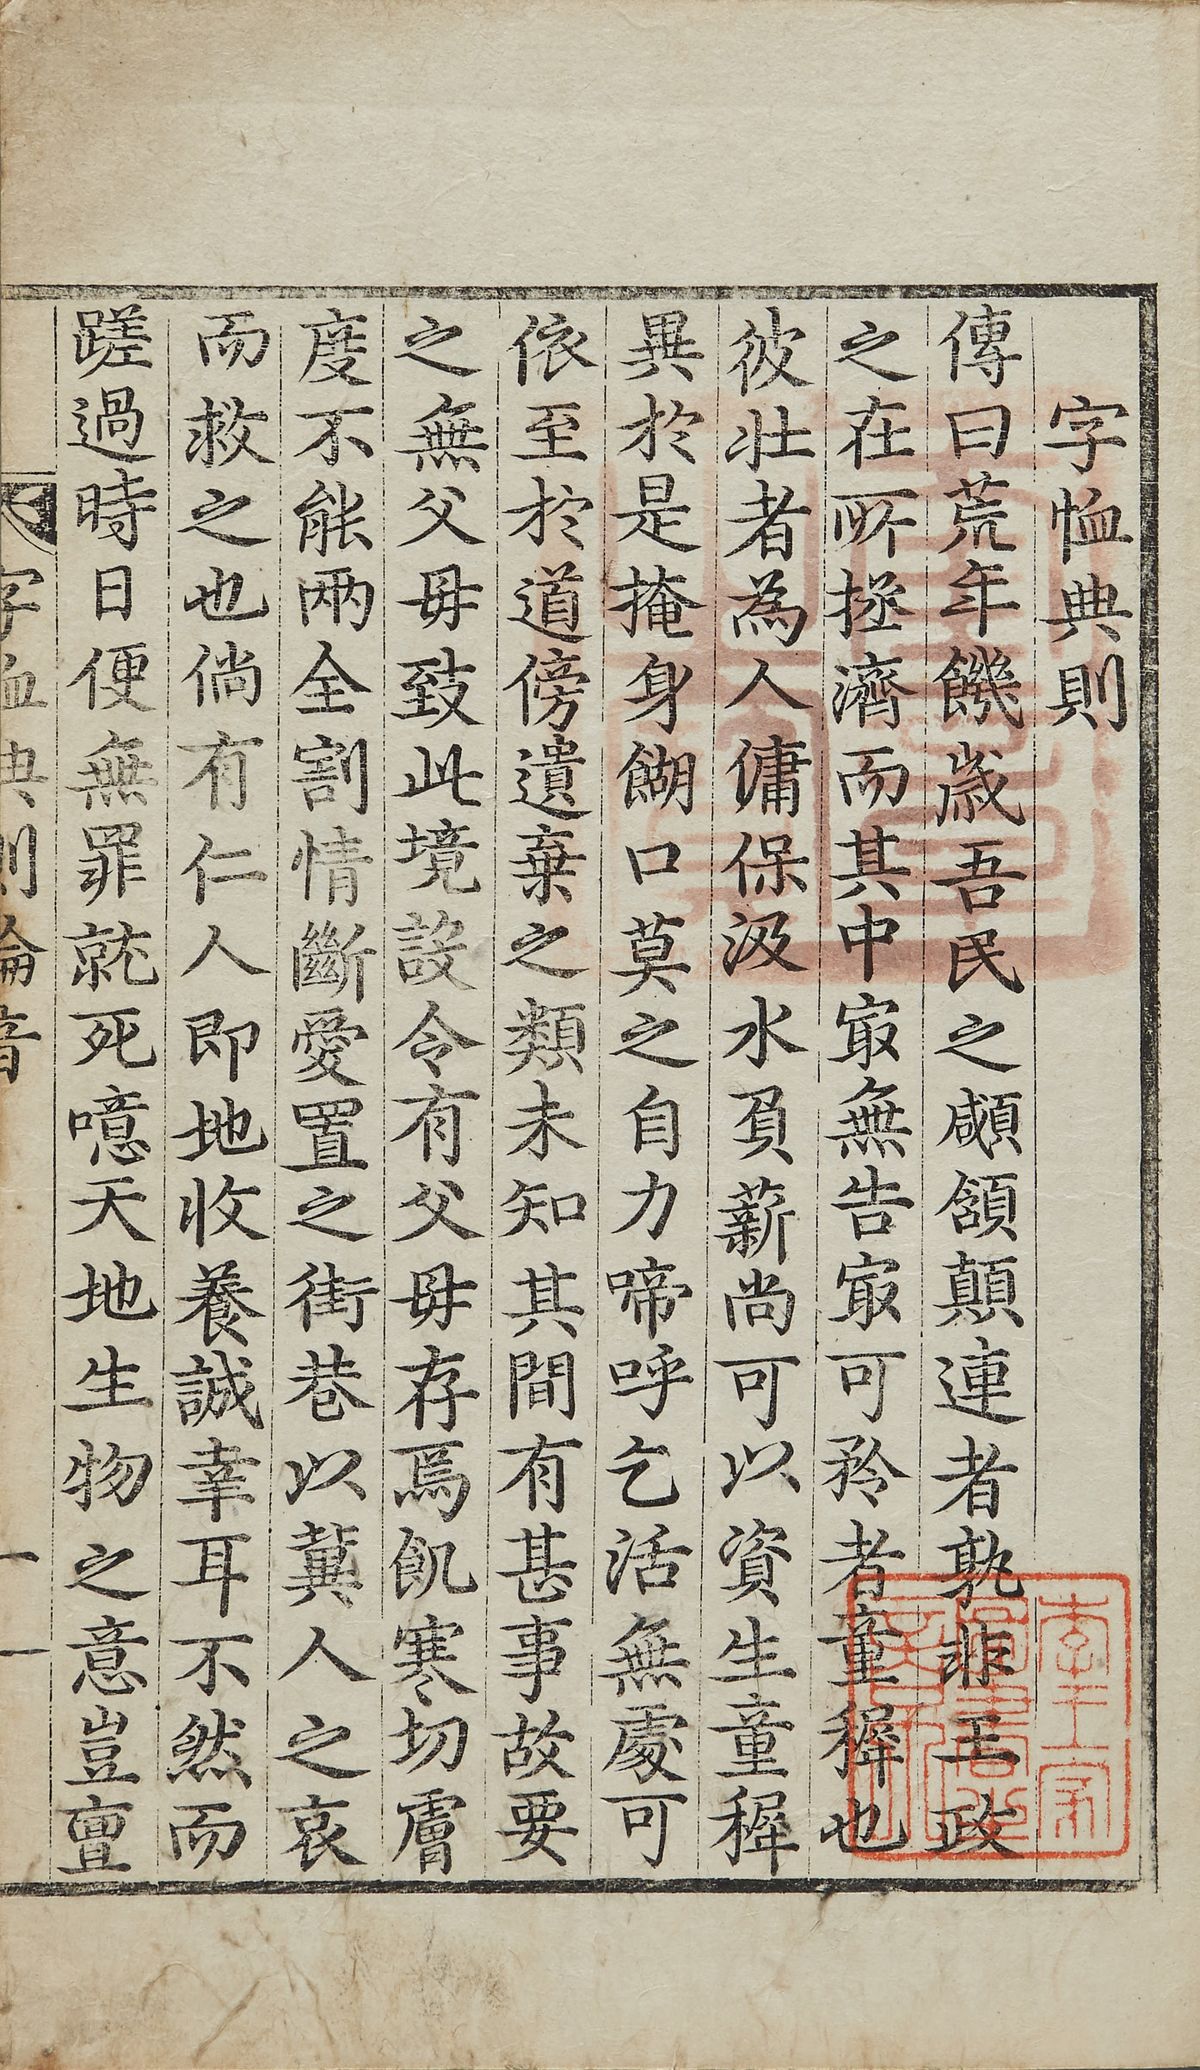 字恤典則
傳曰荒年饑歲吾民之顑頷顛連者孰非王政
之在所拯濟而其中㝡無告㝡可矜者童穉也
彼壯者為人傭保汲水負薪尚可以資生童穉
異於是掩身餬口莫之自力啼呼乞活無處可
依至於道傍遺棄之類未知其間有甚事故要
之無父母致此境設令有父母存焉飢寒切膚
度不能兩全割情斷愛置之街巷以冀人之哀
而救之也倘有仁人即地收養誠幸耳不然而
蹉過時日便無罪就死噫天地生物之意豈亶
字恤典則 綸音
一